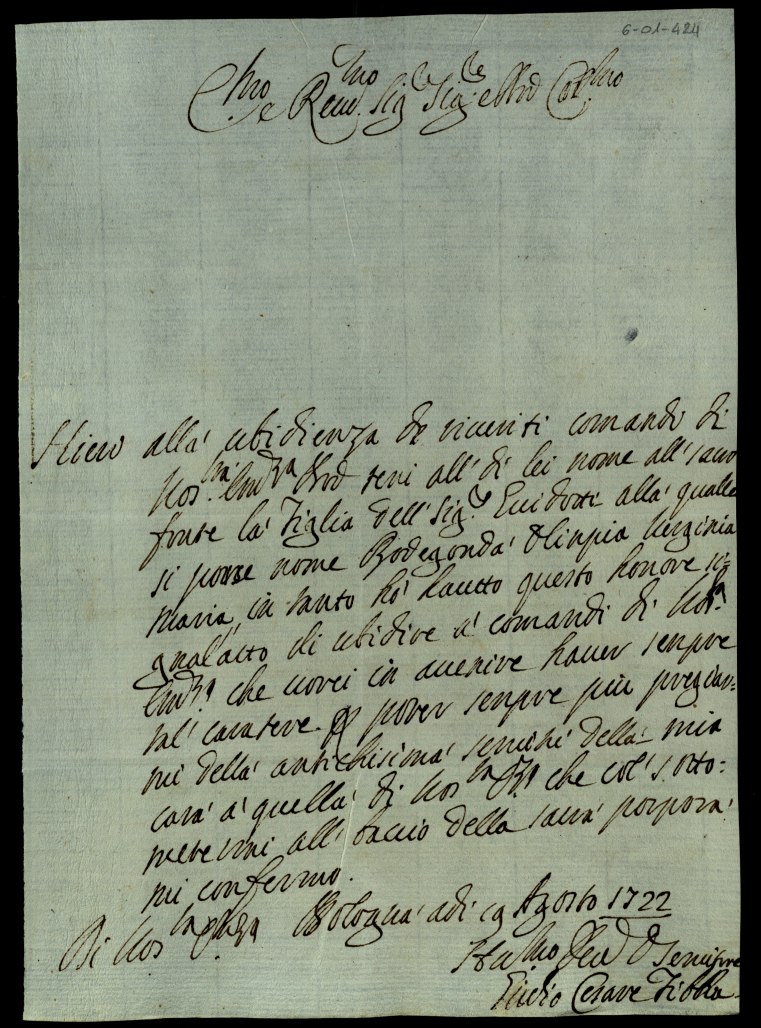 6-01-424
Emo e Revmo Sigre Sigre e Pron Colmo
Hiero alla' ubidienza de riueriti comandi di
Vosra Emza Pron teni all' di lei nome all' sacro
fonte la' Figlia dell' Sigre Guidotti alla' qualle
si posse nome Rodegonda' Olinpia Uerginia
Maria, in tanto hò hautto questo honore si=
gnalatto di ubidire a' comandi di Vosra
Emza che uorei in auenire hauer senpre
tal' carattere. p poter senpre più pregiar=
mi della' antichisima' seruitù della' mia
casa' a' quella' di Vosra Emza che col' sotto=
metermi all' baccio della sacra' porpora'
mi confermo.
Di Vosra Emza Bologna' adi 19 Agosto 1722
Humo Deuo e Oo Seruitore
Guido Cesare Fibbia